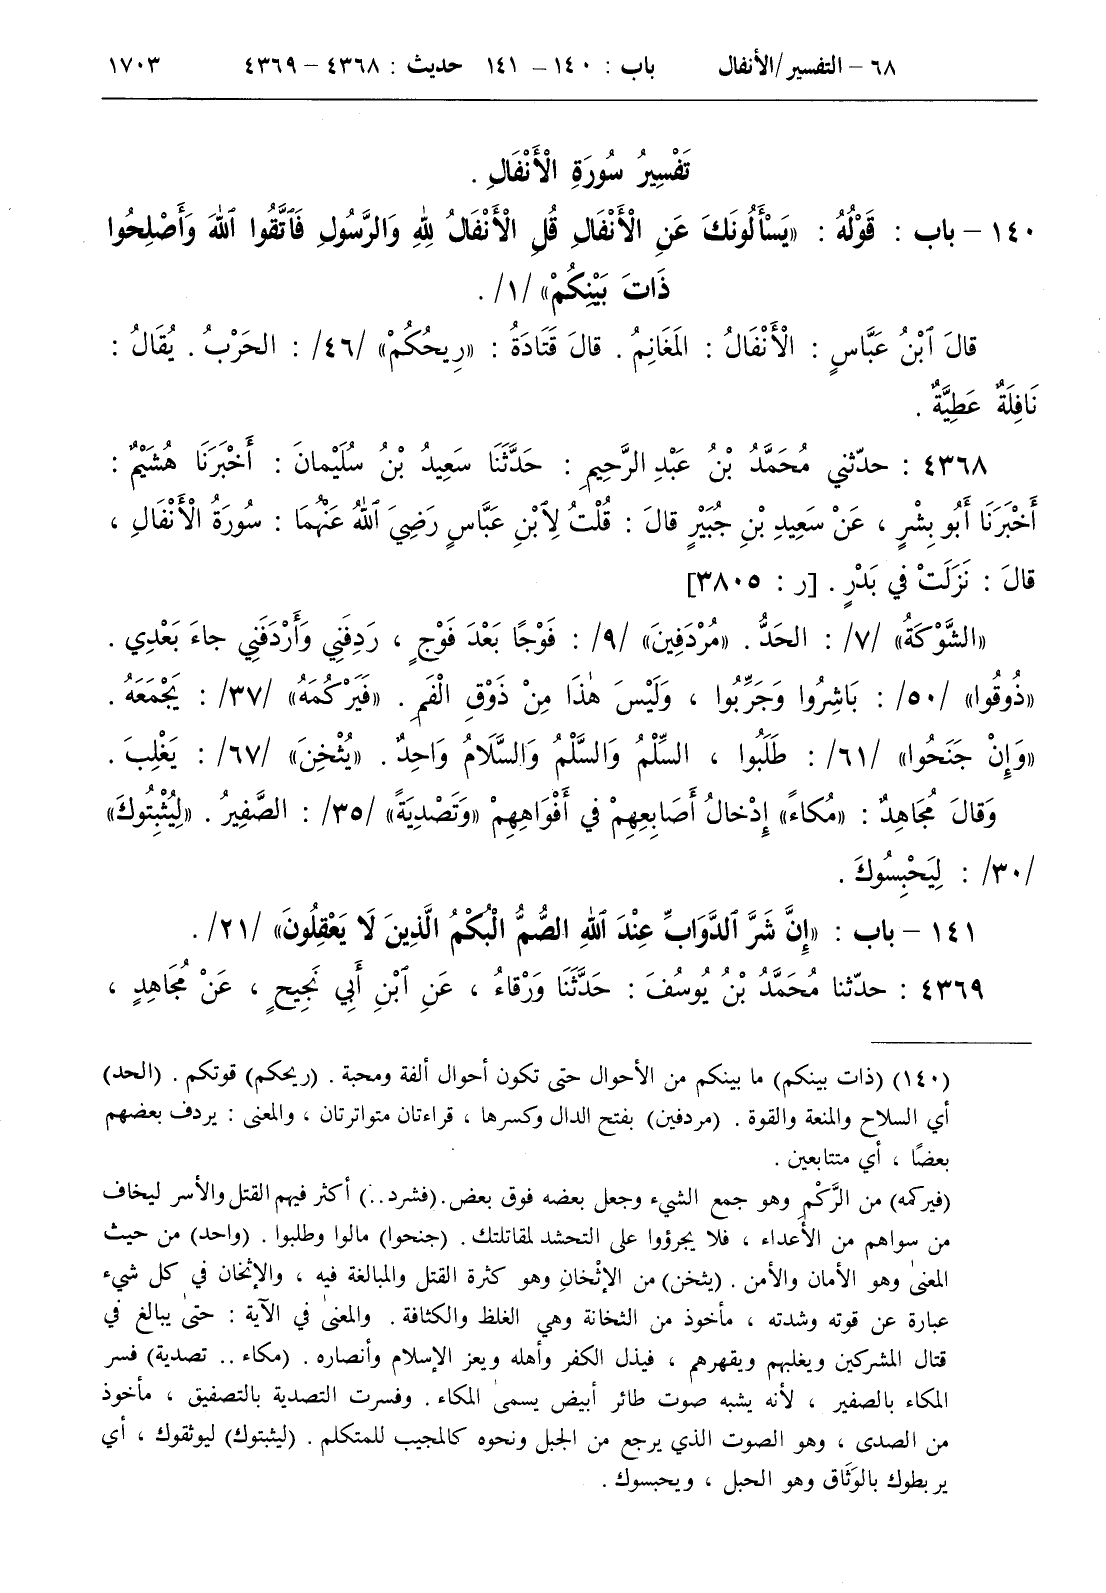 ٦٨ – التفسير/الأنفال باب : ١٤٠ – ١٤١ حديث : ٤٣٦٨ – ٤٣٦٩ ١٧٠٣
تَفْسِيرُ سُورَةِ الْأَنْفَالِ .
١٤٠ – باب : قَوْلُهُ : «يَسْأَلُونَكَ عَنِ الْأَنْفَالِ قُلِ الْأَنْفَالُ لِلّٰهِ وَالرَّسُولِ فَٱتَّقُوا ٱللّٰهَ وَأَصْلِحُوا
ذَاتَ بَيْنِكُمْ» /١/ .
قالَ ٱبْنُ عَبَّاسٍ : الْأَنْفَالُ : المَغَانِمُ . قالَ قَتَادَةُ : «رِيحُكُمْ» /٤٦/ : الحَرْبُ . يُقَالُ :
نَافِلَةٌ عَطِيَّةٌ .
٤٣٦٨ : حدّثني مُحَمَّدُ بْنُ عَبْدِ الرَّحِيمِ : حَدَّثَنَا سَعِيدُ بْنُ سُلَيْمانَ : أَخْبَرَنَا هُشَيْمٌ :
أَخْبَرَنَا أَبُو بِشْرٍ ، عَنْ سَعِيدِ بْنِ جُبَيْرٍ قالَ : قُلْتُ لِٱبْنِ عَبَّاسٍ رَضِيَ ٱللّٰهُ عَنْهُمَا : سُورَةُ الْأَنْفَالِ ،
قالَ : نَزَلَتْ فِي بَدْرٍ . [ر : ٣٨٠٥]
«الشَّوْكَةُ» /٧/ : الحَدُّ . «مُرْدَفِينَ» /٩/ : فَوْجًا بَعْدَ فَوْجٍ ، رَدِفَنِي وَأَرْدَفَنِي جاءَ بَعْدِي .
«ذُوقُوا» /٥٠/ : بَاشِرُوا وَجَرِّبُوا ، وَلَيْسَ هٰذَا مِنْ ذَوْقِ الْفَمِ . «فَيَرْكُمَهُ» /٣٧/ : يَجْمَعَهُ .
«وَإِنْ جَنَحُوا» /٦١/ : طَلَبُوا ، السِّلْمُ وَالسَّلْمُ وَالسَّلَامُ وَاحِدٌ . «يُثْخِنَ» /٦٧/ : يَغْلِبَ .
وَقالَ مُجَاهِدٌ : «مُكاءً» إِدْخالُ أَصَابِعِهِمْ فِي أَفْوَاهِهِمْ «وَتَصْدِيَةً» /٣٥/ : الصَّفِيرُ . «لِيُثْبِتُوكَ»
/٣٠/ : لِيَحْبِسُوكَ .
١٤١ – باب : «إِنَّ شَرَّ ٱلدَّوَابِّ عِنْدَ ٱللّٰهِ الصُّمُّ الْبُكْمُ الَّذِينَ لَا يَعْقِلُونَ» /٢١/ .
٤٣٦٩ : حدّثنا مُحَمَّدُ بْنُ يُوسُفَ : حَدَّثَنَا وَرْقاءُ ، عَنِ ٱبْنِ أَبِي نَجِيحٍ ، عَنْ مُجَاهِدٍ ،
(١٤٠) (ذات بينكم) ما بينكم من الأحوال حتى تكون أحوال ألفة ومحبة . (ريحكم) قوتكم . (الحد)
أي السلاح والمنعة والقوة . (مردفين) بفتح الدال وكسرها ، قراءتان متواترتان ، والمعنى : يردف بعضهم
بعضًا ، أي متتابعين .
(فيركمه) من الرَّكْمِ وهو جمع الشيء وجعل بعضه فوق بعض.(فشرد..) أكثر فيهم القتل والأسر ليخاف
من سواهم من الأعداء ، فلا يجرؤوا على التحشد لمقاتلتك . (جنحوا) مالوا وطلبوا . (واحد) من حيث
المعنىٰ وهو الأمان والأمن . (يثخن) من الإثْخانِ وهو كثرة القتل والمبالغة فيه ، والإثخان في كل شيء
عبارة عن قوته وشدته ، مأخوذ من الثخانة وهي الغلظ والكثافة . والمعنىٰ في الآية : حتىٰ يبالغ في
قتال المشركين ويغلبهم ويقهرهم ، فيذل الكفر وأهله ويعز الإسلام وأنصاره . (مكاء .. تصدية) فسر
المكاء بالصفير ، لأنه يشبه صوت طائر أبيض يسمىٰ المكاء . وفسرت التصدية بالتصفيق ، مأخوذ
من الصدى ، وهو الصوت الذي يرجع من الجبل ونحوه كالمجيب للمتكلم . (ليثبتوك) ليوثقوك ، أي
يربطوك بالوَثَاق وهو الحبل ، ويحبسوك .